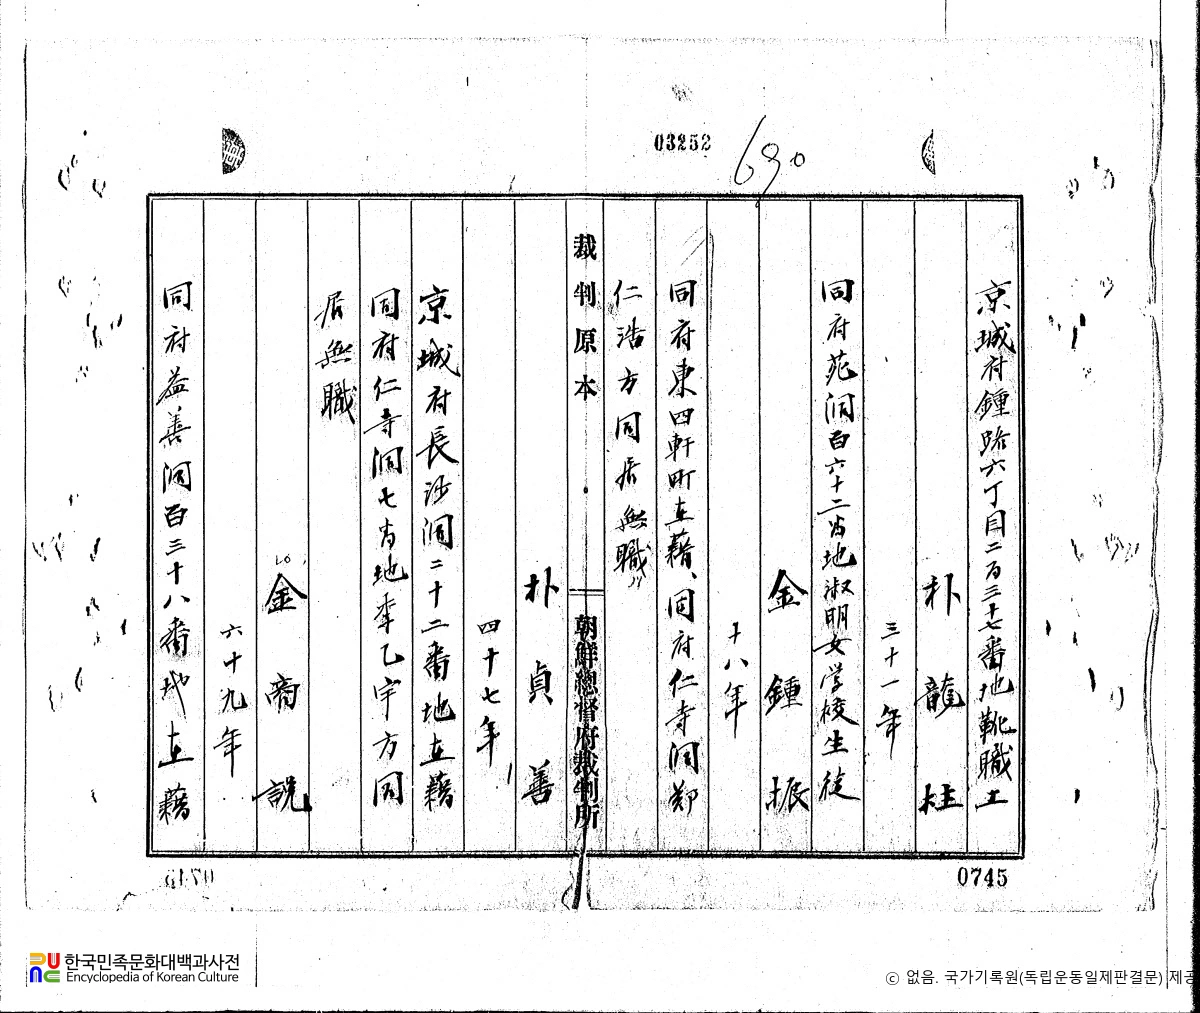 03252
690
京城府鍾路六丁目二百三十七番地靴職工
朴龍柱
三十一年
同府苑洞百六十二番地淑明女学校生徒
金鍾振
十八年
同府東四軒町在籍、同府仁寺洞鄭
仁浩方同居無職
裁判原本
朝鮮總督府裁判所
朴貞善
四十七年
京城府長沙洞二十二番地在籍
同府仁寺洞七番地李乙宇方同
居無職
金商説
六十九年
同府益善洞百三十八番地在籍
0745
한국민족문화대백과사전
Encyclopedia of Korean Culture
ⓒ 없음. 국가기록원(독립운동일제판결문) 제공